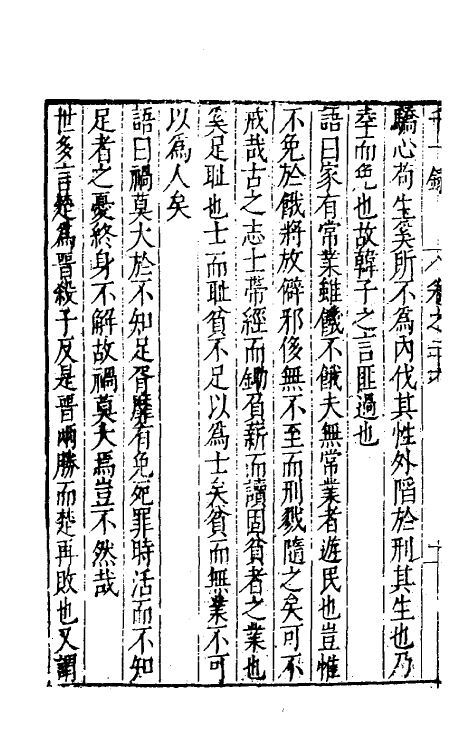 驕心苟生奚所不為內伐其性外陷於刑其生也乃
幸而免也故韓子之言匪過也
語曰家有常業雖饑不餓夫無常業者遊民也豈惟
不免於餓將放僻邪侈無不至而刑戮隨之矣可不
戒哉古之志士帶經而鋤負薪而讀固貧者之業也
奚足耻也士而耻貧不足以為士矣貧而無業不可
以為人矣
語曰禍莫大於不知足胥靡有免死罪時活而不知
足者之憂終身不解故禍莫大焉豈不然哉
世多言楚為晉殺子反是晉兩勝而楚再敗也又謂